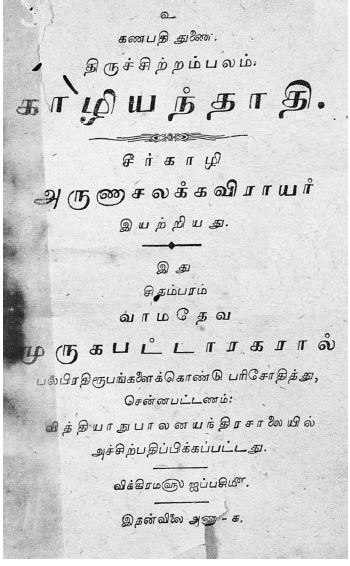 உ
கணபதி துணை.
திருச்சிற்றம்பலம்.
காழியந்தாதி.
சீர்காழி
அருணாசலக்கவிராயர்
இயற்றியது.
இது
சிதம்பரம்
வாமதேவ
முருகபட்டாரகரால்
பலபிரதிரூபங்களைக்கொண்டு பரிசோதித்து,
சென்னபட்டணம்:
வித்தியாநுபாலனயந்திரசாலையில்
அச்சிற்பதிப்பிக்கப்பட்டது.
விக்கிரம௵ ஐப்பசி௴.
இதன்விலை அணா - க.